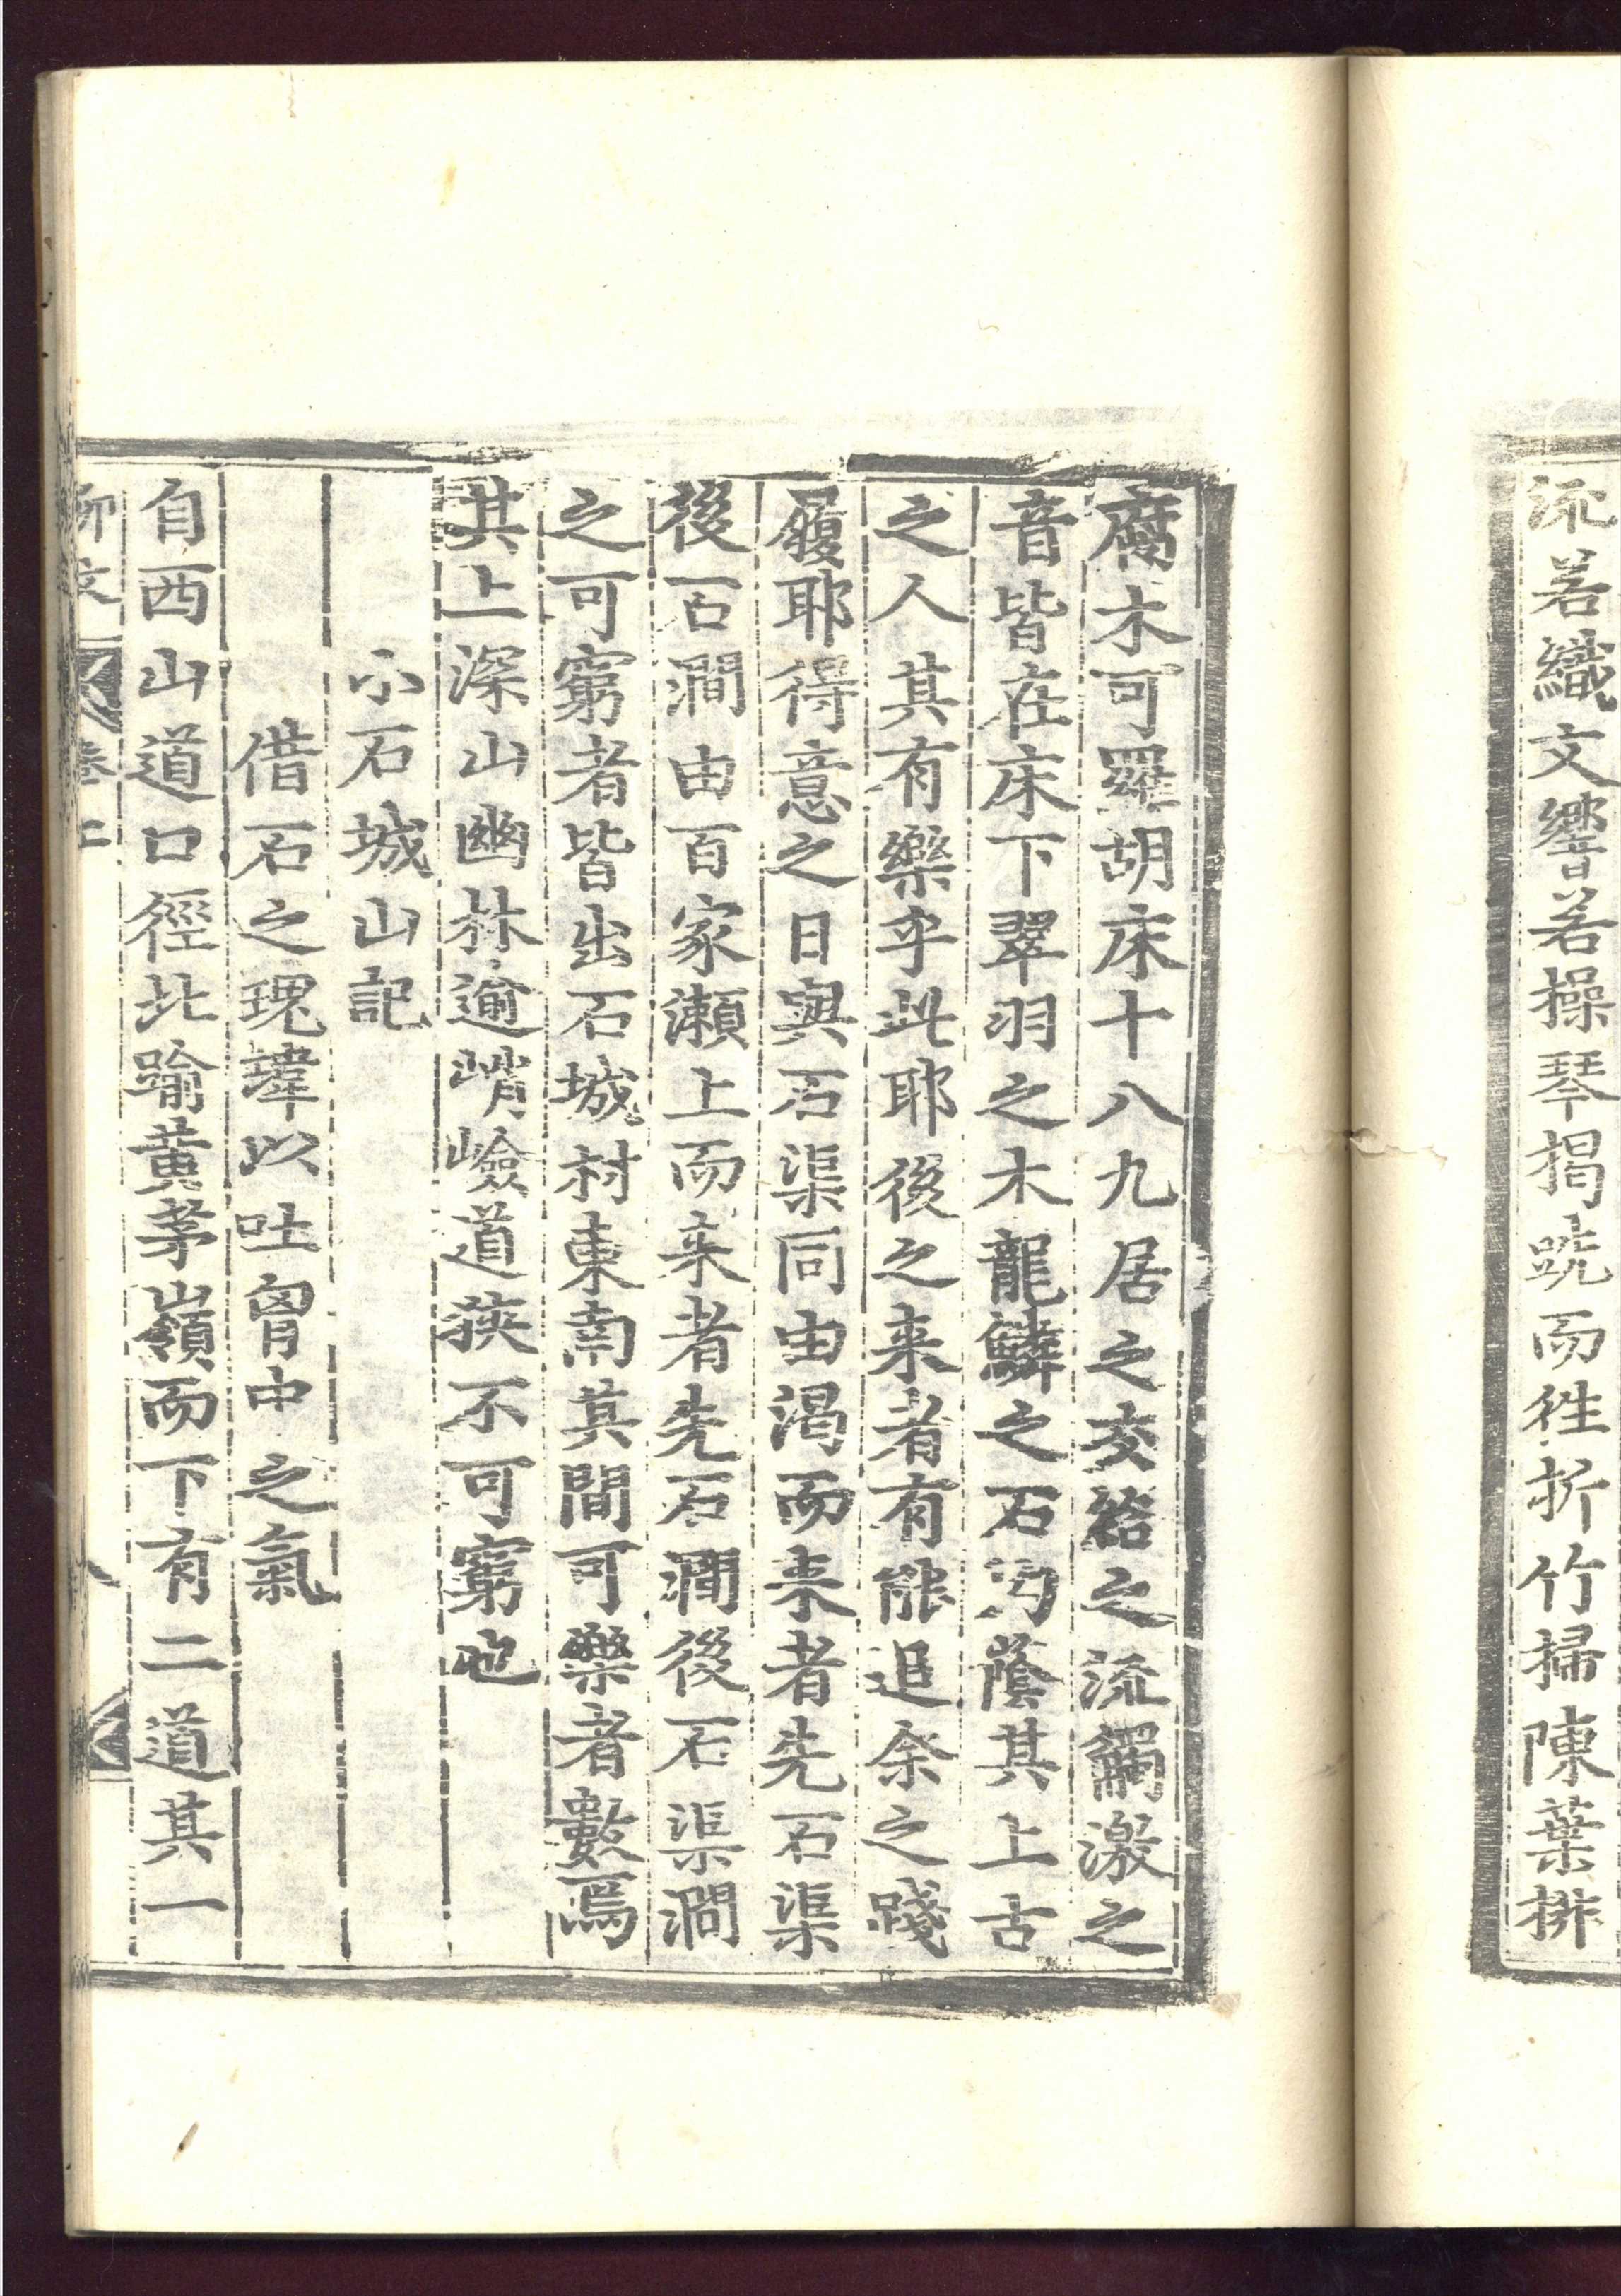 流若織文響若操琴揭跣而徃折竹掃陳葉排
腐木可羅胡床十八九居之交絡之流觸激之
音皆在床下翠羽之木龍鱗之石均蔭其上古
之人其有樂乎此耶後之来者有能追余之踐
履耶得意之日與石渠同由渴而来者先石渠
後石澗由百家瀨上而来者先石澗後石渠澗
之可窮者皆出石城村東南其間可樂者數焉
其上深山幽林逾峭嶮道狹不可窮也
小石城山記
借石之瑰瑋以吐胷中之氣
自西山道口徑北踰黃茅嶺而下有二道其一
柳文 卷上